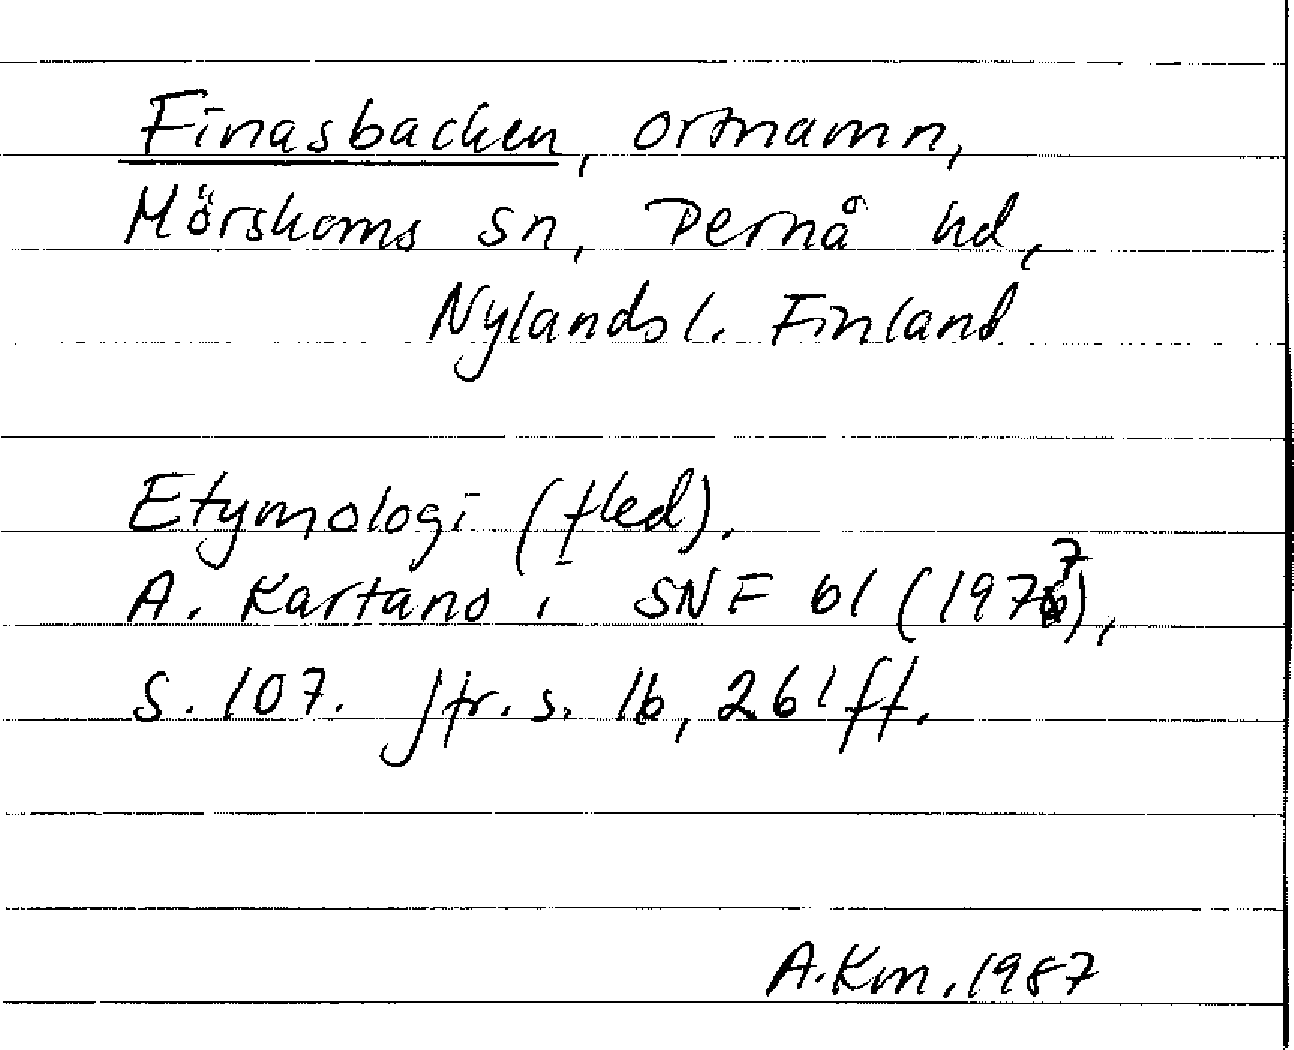 Finasbacken, ortnamn,
Mörskoms sn, Pernå hd,
Nylands l. Finland
Etymologi (fled).
A. Kartano i SNF 61 (1977),
s. 107. Jfr. s. 16, 261 ff.
A.Km. 1987